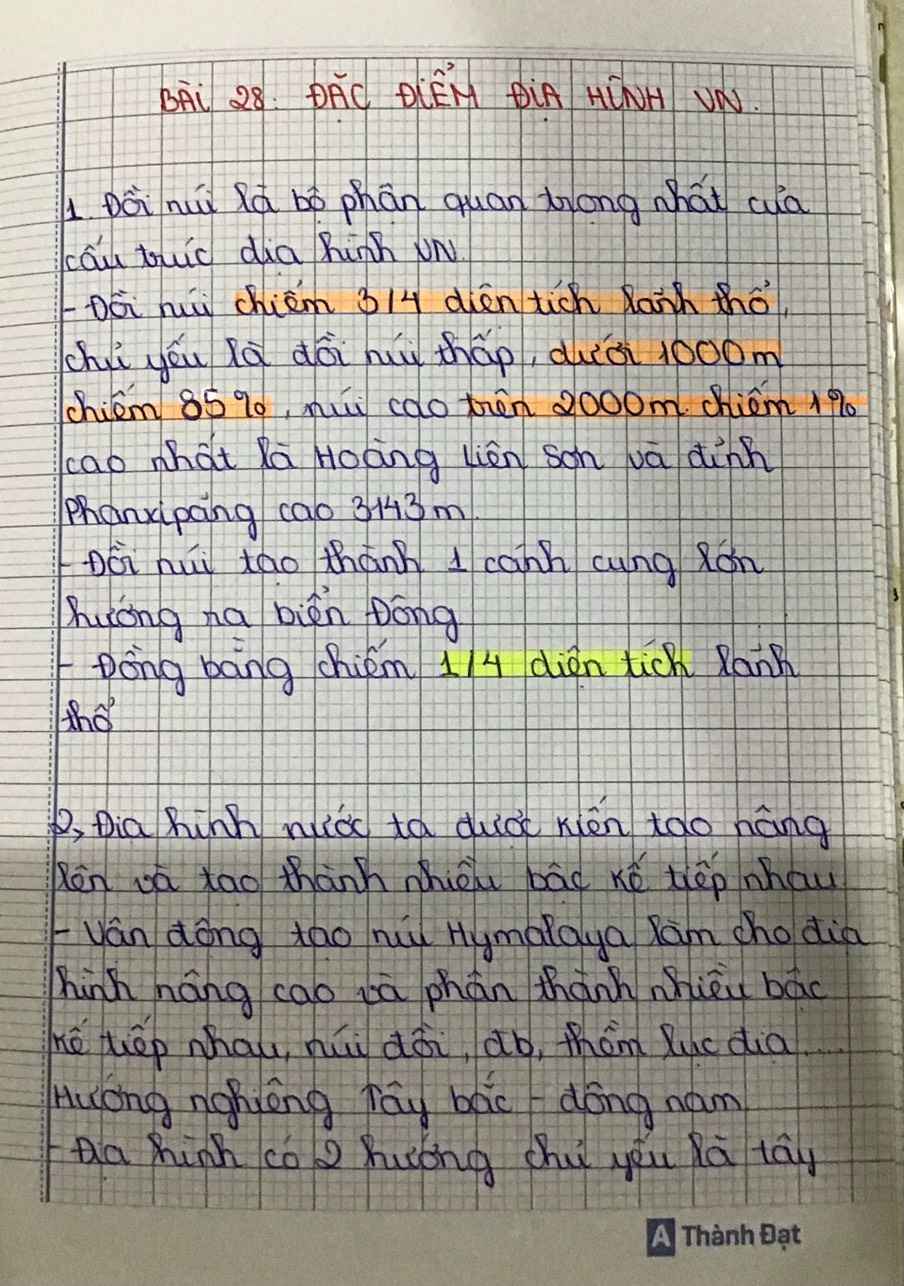 BÀI 28. ĐẶC ĐIỂM ĐỊA HÌNH VN.
1. Đồi núi là bộ phận quan trọng nhất của
cấu trúc địa hình VN.
- Đồi núi chiếm 3/4 diện tích lãnh thổ,
chủ yếu là đồi núi thấp, dưới 1000m
chiếm 85%, núi cao trên 2000m. chiếm 1%
cao nhất là Hoàng Liên Sơn và đỉnh
Phanxipăng cao 3143m.
- Đồi núi tạo thành 1 cánh cung lớn
hướng ra biển Đông
- Đồng bằng chiếm 1/4 diện tích lãnh
thổ
2, Địa hình nước ta được kiến tạo nâng
lên và tạo thành nhiều bậc kế tiếp nhau
- Vận động tạo núi Hymalaya làm cho địa
hình nâng cao và phân thành nhiều bậc
kế tiếp nhau, núi đồi, đb, thềm lục địa....
Hướng nghiêng Tây bắc - đông nam
- Địa hình có 2 hướng chủ yếu là tây
A Thành Đạt